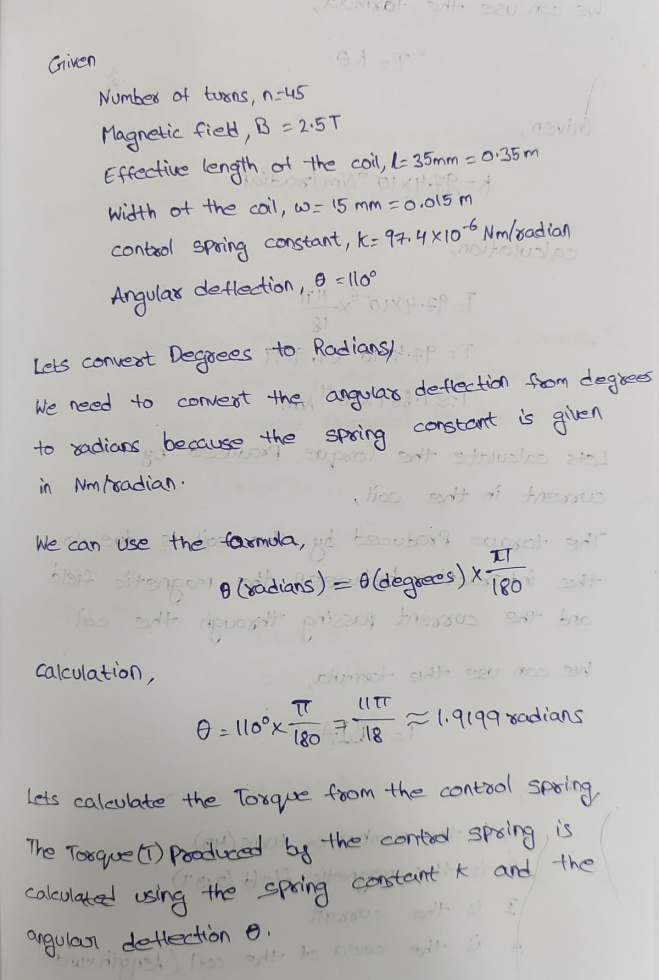 Given
Number of turns, n=45
Magnetic field, B = 2.5T
Effective length of the coil, l= 35mm = 0.35m
Width of the coil, w= 15 mm = 0.015 m
control spring constant, k= 97.4 × 10⁻⁶ Nm/radian
Angular deflection, θ = 110°
Lets convert Degrees to Radians,
We need to convert the angular deflection from degrees
to radians because the spring constant is given
in Nm/radian.
We can use the formula,
θ (radians) = θ (degrees) × π/180
Calculation,
θ = 110° × π/180 = 11π/18 ≈ 1.9199 radians
Lets calculate the Torque from the control spring,
The Torque (T) Produced by the control spring is
calculated using the spring constant k and the
angular deflection θ.